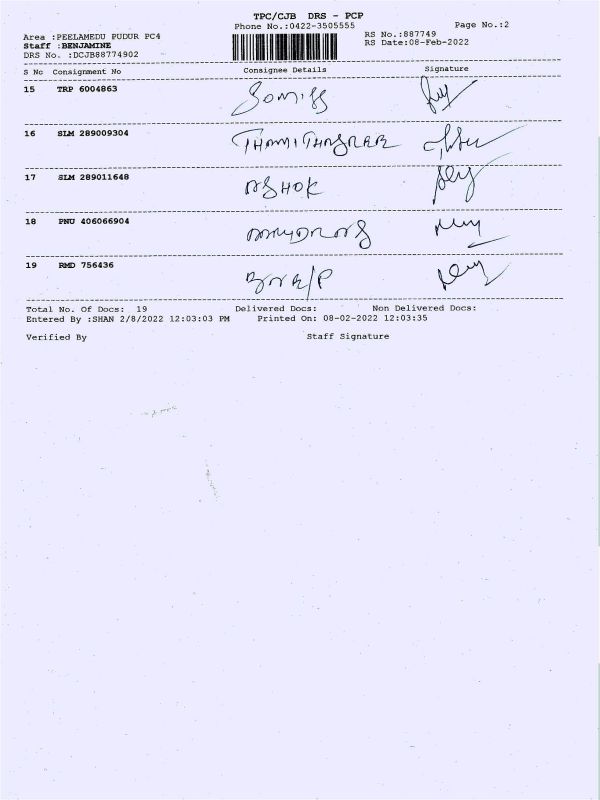 TPC/CJB DRS - PCP
Phone No.:0422-3505555 Page No.:2
Area :PEELAMEDU PUDUR PC4 RS No.:887749
Staff :BENJAMINE RS Date:08-Feb-2022
DRS No. :DCJB88774902
S No Consignment No Consignee Details Signature
15 TRP 6004863
16 SLM 289009304
17 SLM 289011648 ASHOK
18 PNU 406066904
19 RMD 756436
Total No. Of Docs: 19 Delivered Docs: Non Delivered Docs:
Entered By :SHAN 2/8/2022 12:03:03 PM Printed On: 08-02-2022 12:03:35
Verified By Staff Signature